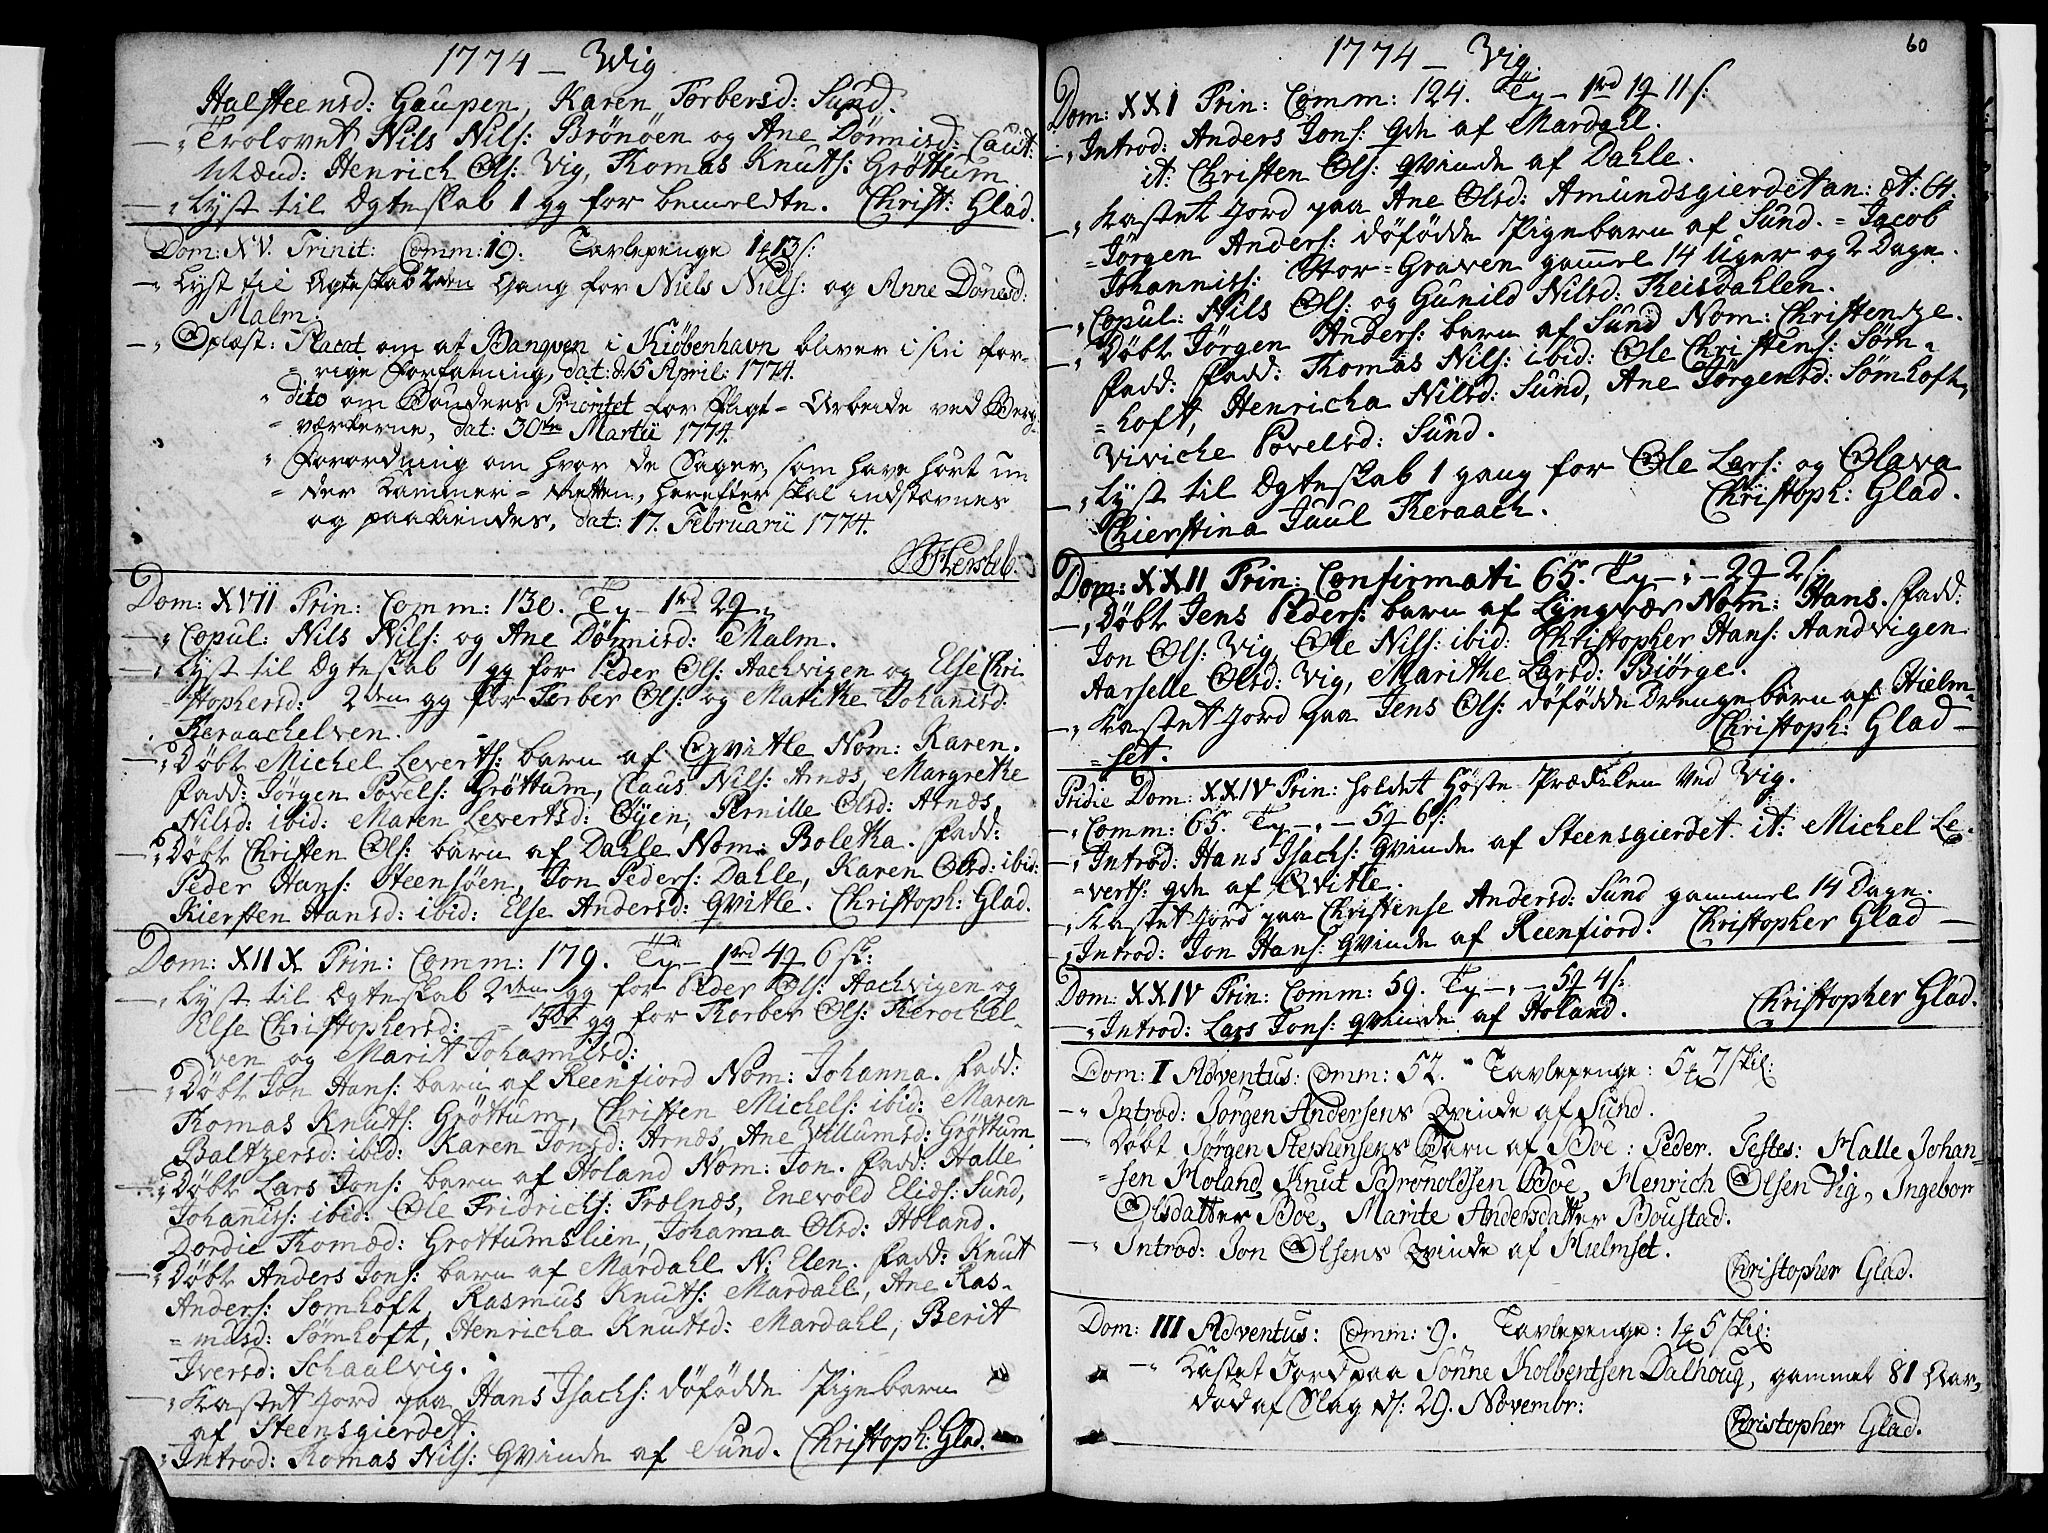 1774 – Wig
Halsteensd: Gaupen, Karen Torbersd: Sund.
—, Trolovet Nils Nils: Brönöen og Ane Dönnisd: Caut:
Mænd: Henrich Ols: Vig, Thomas Knuts: Gröttum
—, Lyst til Ægteskab 1 gg for bemeldte. Christ: Glad.
Dom: XV. Trinit: Comm: 19. Tavlepenge 1 ꝗ 13 s:
—, Lyst til Ægteskab 2den Gang for Niels Niels: og Anne Dönesd:
Malm.
—, Oplæst: Placat om at Banqven i Kiöbenhavn bliver i sin for-
= rige Forfatning, dat: d: 5 April: 1774.
" dito om Bönders Prioritet for Pligt = Arbeide ved Berg-
= værkerne, dat: 30te Martii 1774.
" Forordning om hvor de Sager, som have hört un
= der Kammer = Retten, herefter skal indstævnes
og paakiendes, dat: 17. Februarii 1774.
Hersleb.
Dom: XVII Trin: Comm: 130. Tp – 1rd 2ꝗ „
—, Copul: Nils Nils: og Ane Dönnisd: Malm.
—, Lyst til Ægteskab 1 gg for Peder Ols: Aachvigen og Else Chri
= stophersd: 2den gg for Torber Ols: og Marithe Johanisd:
Keraachelven.
—, Döbt Michel Leverts: barn af Qvitle Nom: Karen.
Fadd: Jörgen Povels: Gröttum, Claus Nils: Arnæs, Margrethe
Nilsd: ibid: Maren Levertsd: Öyen, Pernille Olsd: Arnæs,
—, Döbt Christen Ols: barn af Dahle Nom: Boletha. Fadd:
Peder Hans: Steensöen, Jon Peders: Dahle, Karen Olsd: ibid:
Kiersten Hansd: ibid: Else Andersd: Qvitle. Christoph: Glad.
Dom: XIIX Trin: Comm: 179. Tp – 1rd 4ꝗ 6 sk:
—, Lyst til Ægteskab 2den gg for Peder Ols: Aachvigen og
Else Christophersd: = for gg for Thorber Ols: Kerochel-
ven og Marit Johannisd:
—, Döbt Jon Hans: barn af Reenfiord Nom: Johanna. Fadd:
Thomas Knuts: Gröttum, Christen Michels: ibid: Maren
Baltzersd: ibid: Karen Jonsd: Arnæs, Ane Villumsd: Gröttum.
—, Döbt Lars Jons: barn af Holand Nom: Jon. Fadd: Halle
Johannis: ibid: Ole Fridrichs: Trælnæs, Enevold Elids: Sund,
Dordie Thomæd: Grottumslien, Johanna Olsd: Holand.
—, Döbt Anders Jons: barn af Mardahl N: Elen. Fadd: Knutt
Anders: Sömhoft, Rasmus Knuts: Mardahl, Ane Ras-
= musd: Sömhoft, Henricha Knutsd: Mardahl, Berit
Iversd: Schaalvig.
—, Kastet Jord paa Hans Isachs: döfödde Pigebarn
af Steensgierdet.
—, Introd: Thomas Nils: qvinde af Sund. Christoph: Glad.
60
1774 – Vig.
Dom: XXI Trin: Comm: 124. Tp – 1rd 1ꝗ 11 s:
—, Introd: Anders Jons: qde af Mardahl.
it: Christen Ols: qvinde af Dahle.
—, Kastet Jord paa Ane Olsd: Amundsgierdet an: æt: 64.
= Jörgen Anders: döfödde Pigebarn af Sund. = Jacob
Johannis: Stor = Graven gammel 14 Uger og 2 Dage.
—, Copul: Nils Ols: og Gunild Nilsd: Reisdahlen.
—, Döbt Jörgen Anders: barn af Sund Nom: Christendze.
Fadd: Fadd: Thomas Nils: ibid: Ole Christens: Söm-
= hoft, Henricha Nilsd: Sund, Ane Jörgensd: Sömhoft,
Viviche Povelsd: Sund.
—, Lyst til Ægteskab 1 gang for Ole Lars: og Olava
Chierstina Juul Keraach. Christoph: Glad.
Dom: XXII Trin: Confirmati 65. Tp – „ – 2ꝗ 2 s:
—, Döbt Jens Peders: barn af Lyngvær Nom: Hans. Fadd:
Jon Ols: Vig, Ole Nils: ibid: Christopher Hans: Aandvigen
Aarselle Olsd: Vig, Marithe Larsd: Biörge.
—, Kastet Jord paa Jens Ols: döfödde Drengebarn af Hielm-
= set. Christoph: Glad –
Pridie Dom: XXIV Trin: holdet Höste-Prædiken ved Vig.
—, Comm: 65. Tp – „ – 5ꝗ 6 s:
—, Introd: Hans Isachs: qvinde af Steensgierdet. it: Michel Le-
= verts: qde af Qvitle.
—, Kastet Jord paa Christense Andersd: Sund gammel 14 Dage.
—, Introd: Jon Hans: qvinde af Reenfiord. Christopher Glad —
Dom: XXIV Trin: Comm: 59. Tp – „ – 5ꝗ 4 s:
—, Introd: Lars Jons: qvinde af Holand. Christopher Glad.
Dom: I Adventus: Comm: 52. Tavlepenge: 5 ꝗ 7 skil:
—" Introd: Jörgen Andersens Qvinde af Sund.
—" Döbt Jörgen Stephensens Barn af Boe: Peder. Testes: Halle Johan-
= sen Holand, Knut Brönoldsen Boe, Henrich Olsen Vig, Ingebor
Olsdatter Boe, Marite Andersdatter Boustad.
—" Introd: Jon Olsens Qvinde af Hielmset.
Christopher Glad.
Dom: III Adventus: Comm: 9. Tavlepenge: 1ꝗ 5 skil:
—" Kastet Jord paa Sönne Kolbentsen Dalhoug, gammel 81 Aar,
död af Slag d: 29. Novembr:
Christopher Glad.